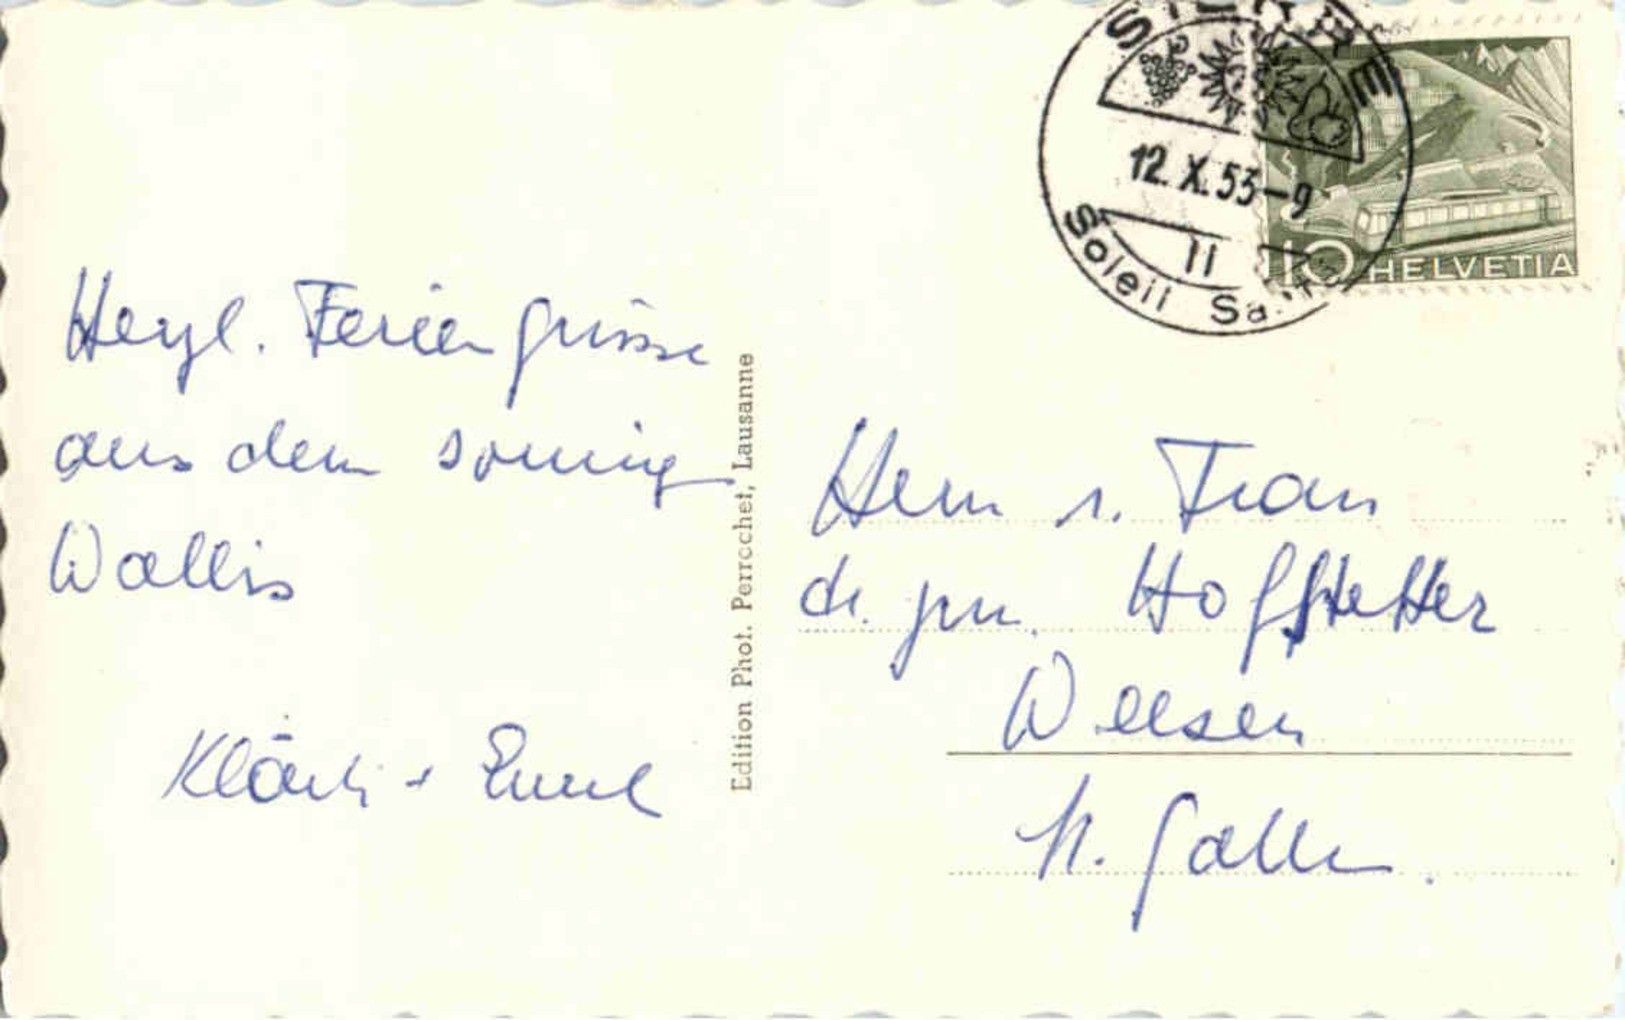 Herzl. Feriengrüsse
aus dem sonnig
Wallis
Klärli + Emil
Edition Phot. Perrochet, Lausanne
SIERRE
12. X. 53-9
11
Soleil
10 HELVETIA
Herrn u. Frau
dr. jur. Hofstetter
Weesen
St. Gallen.